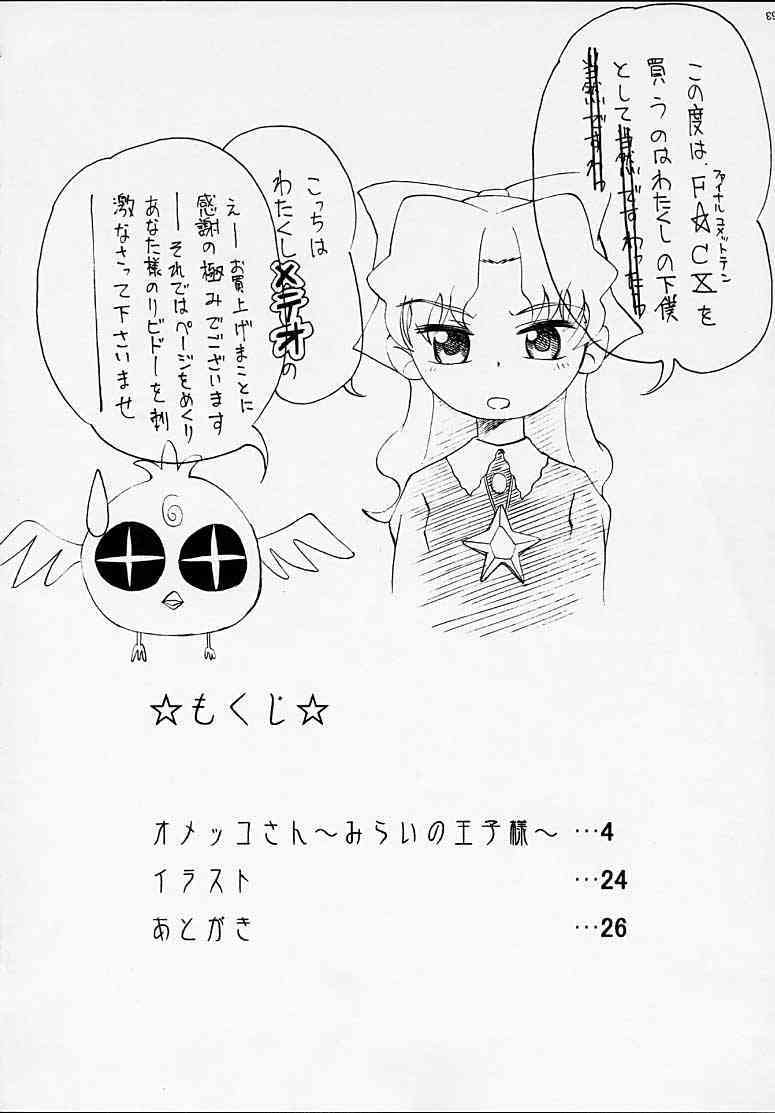 この度は、F☆CXを
ファイナルコメットテン
買うのはわたくしの下僕
として当然ですわったっ
当然ですわっ
こっちは
わたくしメテオの
えーお買上げまことに
感謝の極みでございます
――それではページをめくり
あなた様のリビドーを刺
激なさって下さいませ
☆もくじ☆
オメッコさん～みらいの王子様～ …4
イラスト …24
あとがき …26